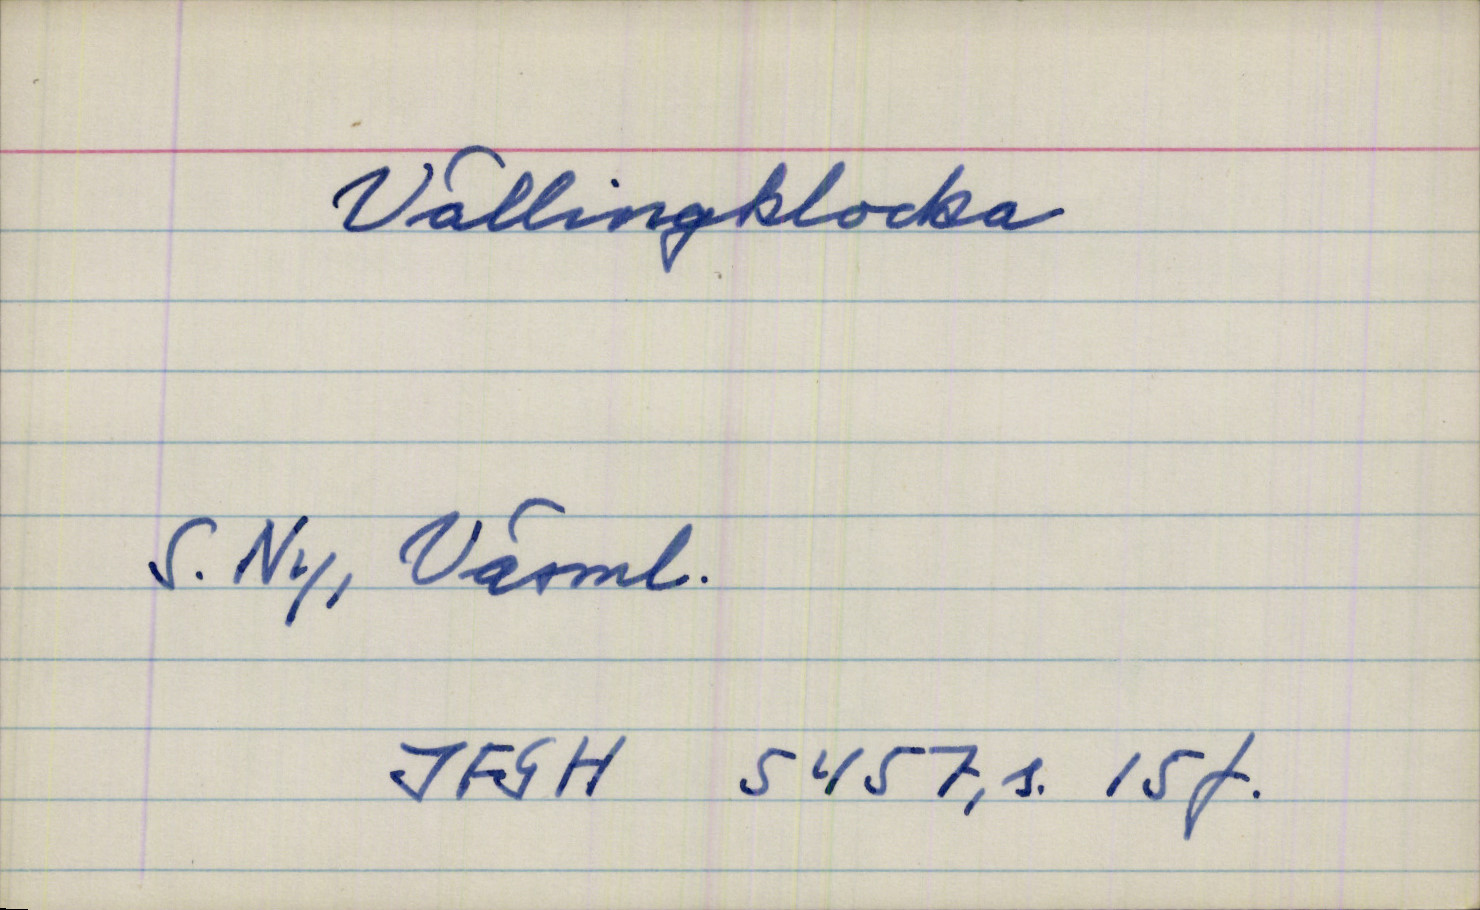 Vällingklocka
S. Ny, Värml.
IFGH 5457, s. 15f.